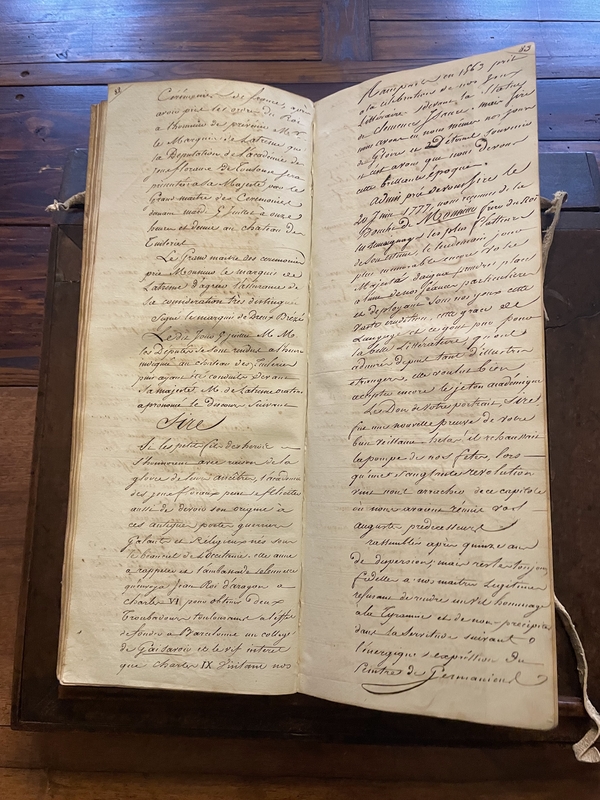 82
Cérémonies de france, après
avoir pris les ordres du Roi
a l'honneur de prévenir Mr
le Marquis de Latresne que
la Députation de l'académie des
jeux floraux de Toulouse sera
présentée à Sa Majesté par le
Grand maître des Cérémonies
demain mardi 9 juillet a onze
heures et demie au chateau des
Tuileries
Le Grand maitre des cérémonies
prie Monsieur le marquis de
Latresne d'agréer l'assurance de
Sa considération très distinguée
Signé le marquis de Dreux Brézé
Le dit jour 9 juillet M. M.
les Députés se sont rendus a l'heure
indiquée au chateau des tuileries
puis ayant été conduits devant
Sa majesté, M. de Latresne
a prononcé le Discours suivant
Sire
Si les petits fils des héros
s'honorent avec raison de la
gloire de leurs ancêtres, l'académie
des jeux floraux peut se féliciter
aussi de devoir son origine a
ces antiques poetes guerriers
Galants et Religieux nés sous
le beau ciel de L'Occitanie. elle aime
a rappeler et l'ambassade solennelle
qu'envoya Jean Roi d'aragon a
charles VI pour obtenir deux
Troubadours toulousains a l'effet
de fonder a Barcelonne un college
de Gai Savoir et le vif interet
que charles IX Visitant nos
83
Remparts en 1563 prit
a la célébration de nos jeux
littéraires devant la statue
de clemence Isaure, mais Sire
nous avons eu nous mêmes nos jours
de Gloire et D'éternel Souvenir
et est avous que nous devons
cette brillante époque.
admis près de vous Sire le
20 Juin 1777, nous reçumes de la
Bouche de Monsieur frere du Roi
les temoignages les plus flatteurs
de Son estime, le lendemain jour
plus mémorable encore Votre
Majesté daigna présider
a une de nos Séances particulieres
et deployant Sous nos yeux cette
Vaste erudition, cette grace de
Langage et ce gout pur pour
la belle littérature qu'ont
admiré depuis tant d'illustres
étrangers, elle voulut bien
accepter encore le jeton académique
Le Don de Votre portrait, Sire
fut une nouvelle preuve de votre
bienveillance hélas, il rehaussait
la pompe de nos fêtes, lors
qu'une Sanglante révolution
vint nous arracher de ce capitole
où nous avaient réunis vos
augustes prédécesseurs
rassemblés après quinze ans
de dispersion, mais restés toujours
fidelles a nos maitres Légitimes
refusant de rendre un vil hommage
a la Tyrannie et de nous précipiter
dans la Servitude suivant
l'énergique expression du
Peintre de Germanicus